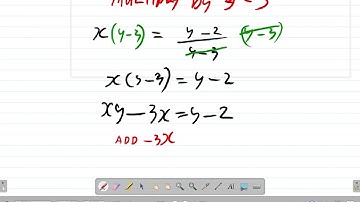 x(y-3) = \frac{y-2}{y-3} (y-3)
x(y-3) = y-2
xy - 3x = y-2
ADD -3x